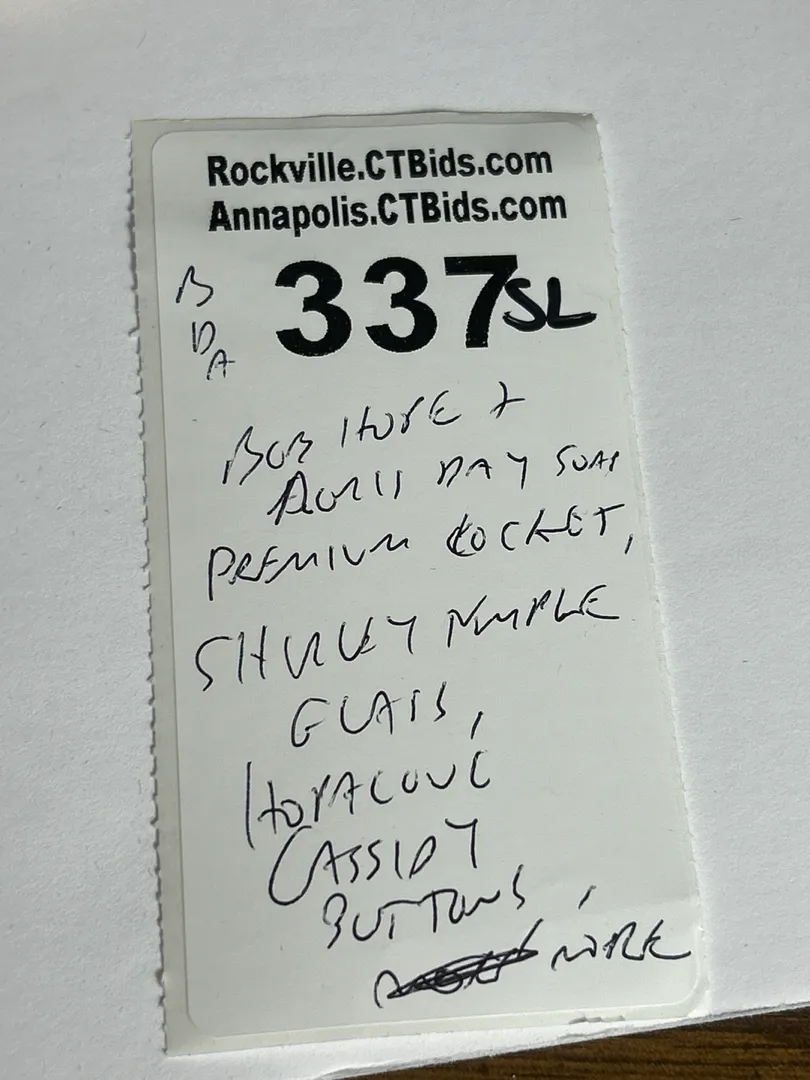 Rockville.CTBids.com
Annapolis.CTBids.com
B
D
A
337SL
BOB HOPE +
DORIS DAY SOAP
PREMIUM ROCKET,
SHIRLEY TEMPLE
GLASS,
HOPALONG
CASSIDY
BUTTONS,
MORE